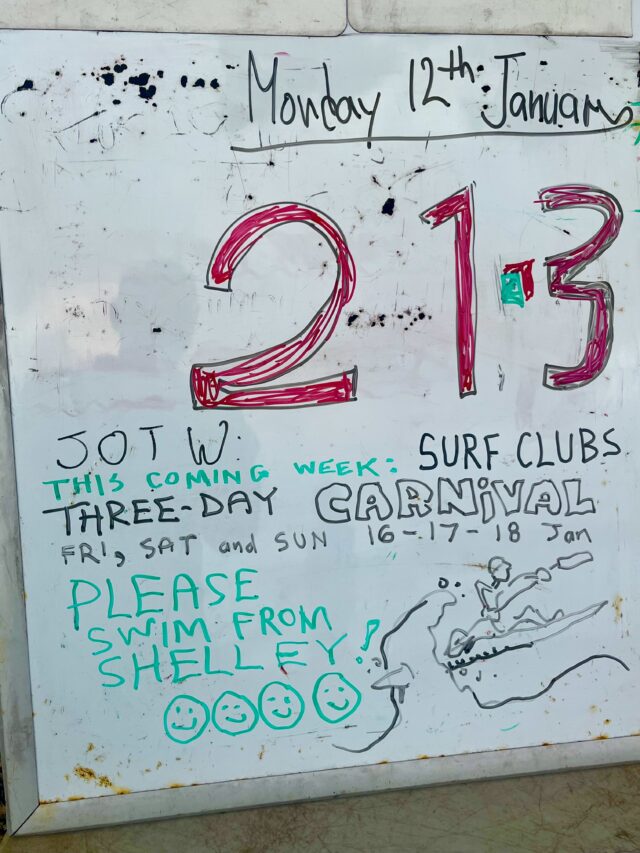 Monday 12th January
21.3
JOT W:
THIS COMING WEEK: SURF CLUBS
THREE-DAY CARNiVAL
FRI, SAT and SUN 16-17-18 Jan
PLEASE
SWIM FROM
SHELLEY!